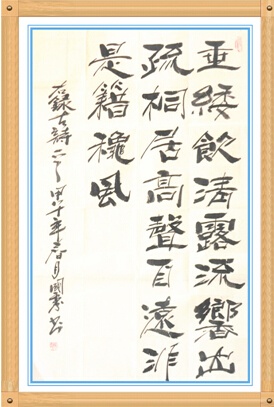 垂緌飲清露流響出
疏桐居高聲自遠非
是籍穐風
錄古詩一年春月國